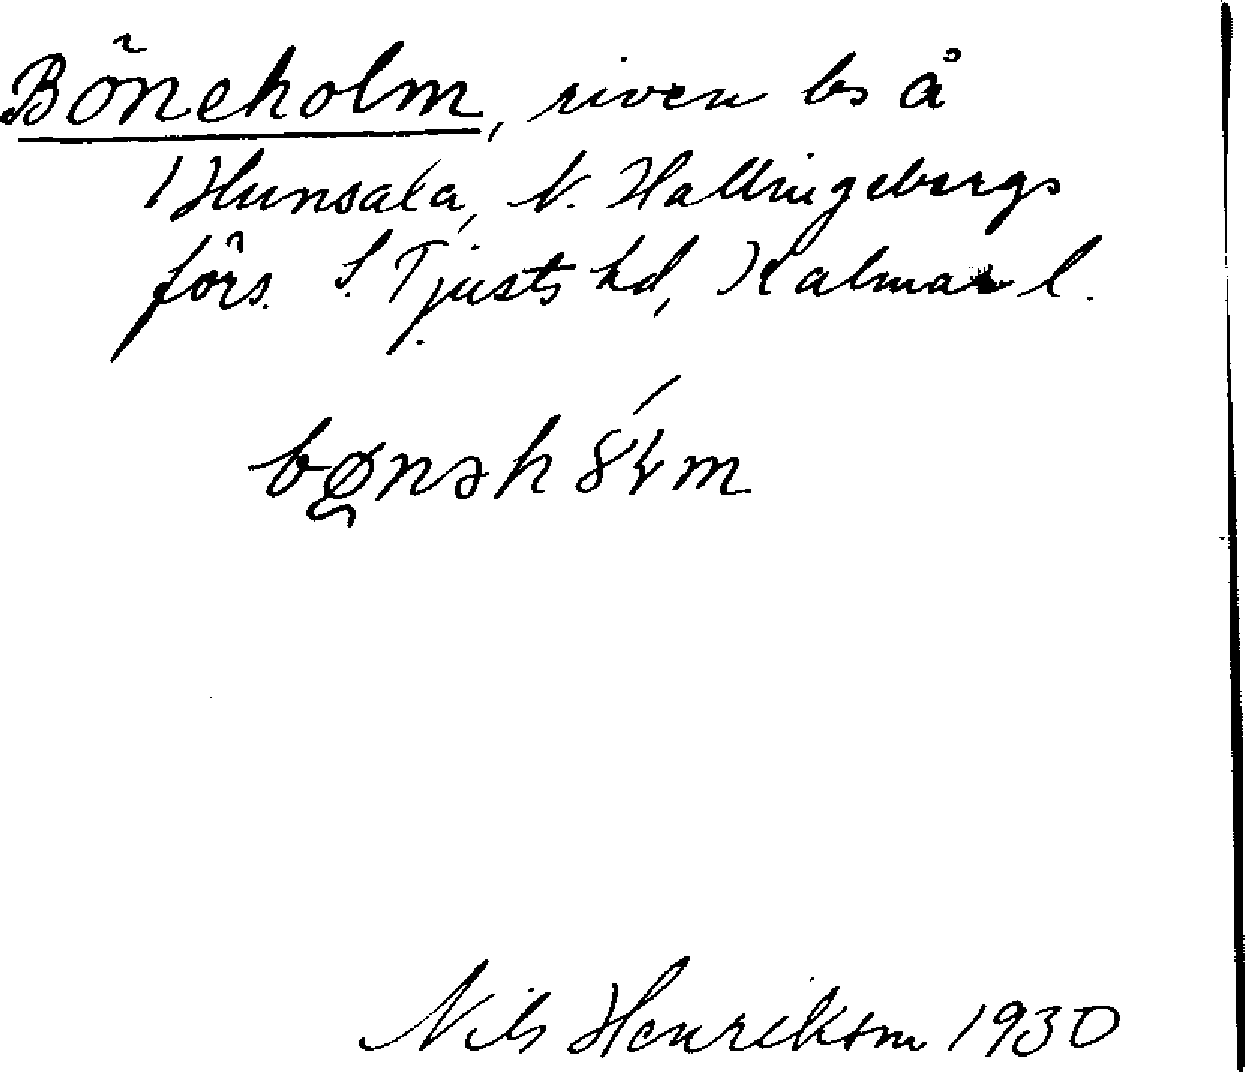 Böneholm, riven bs å
Hunsala, V. Hallingebergs
förs. S. Tjusts hd, Kalmar l.
Nils Henrikson 1930